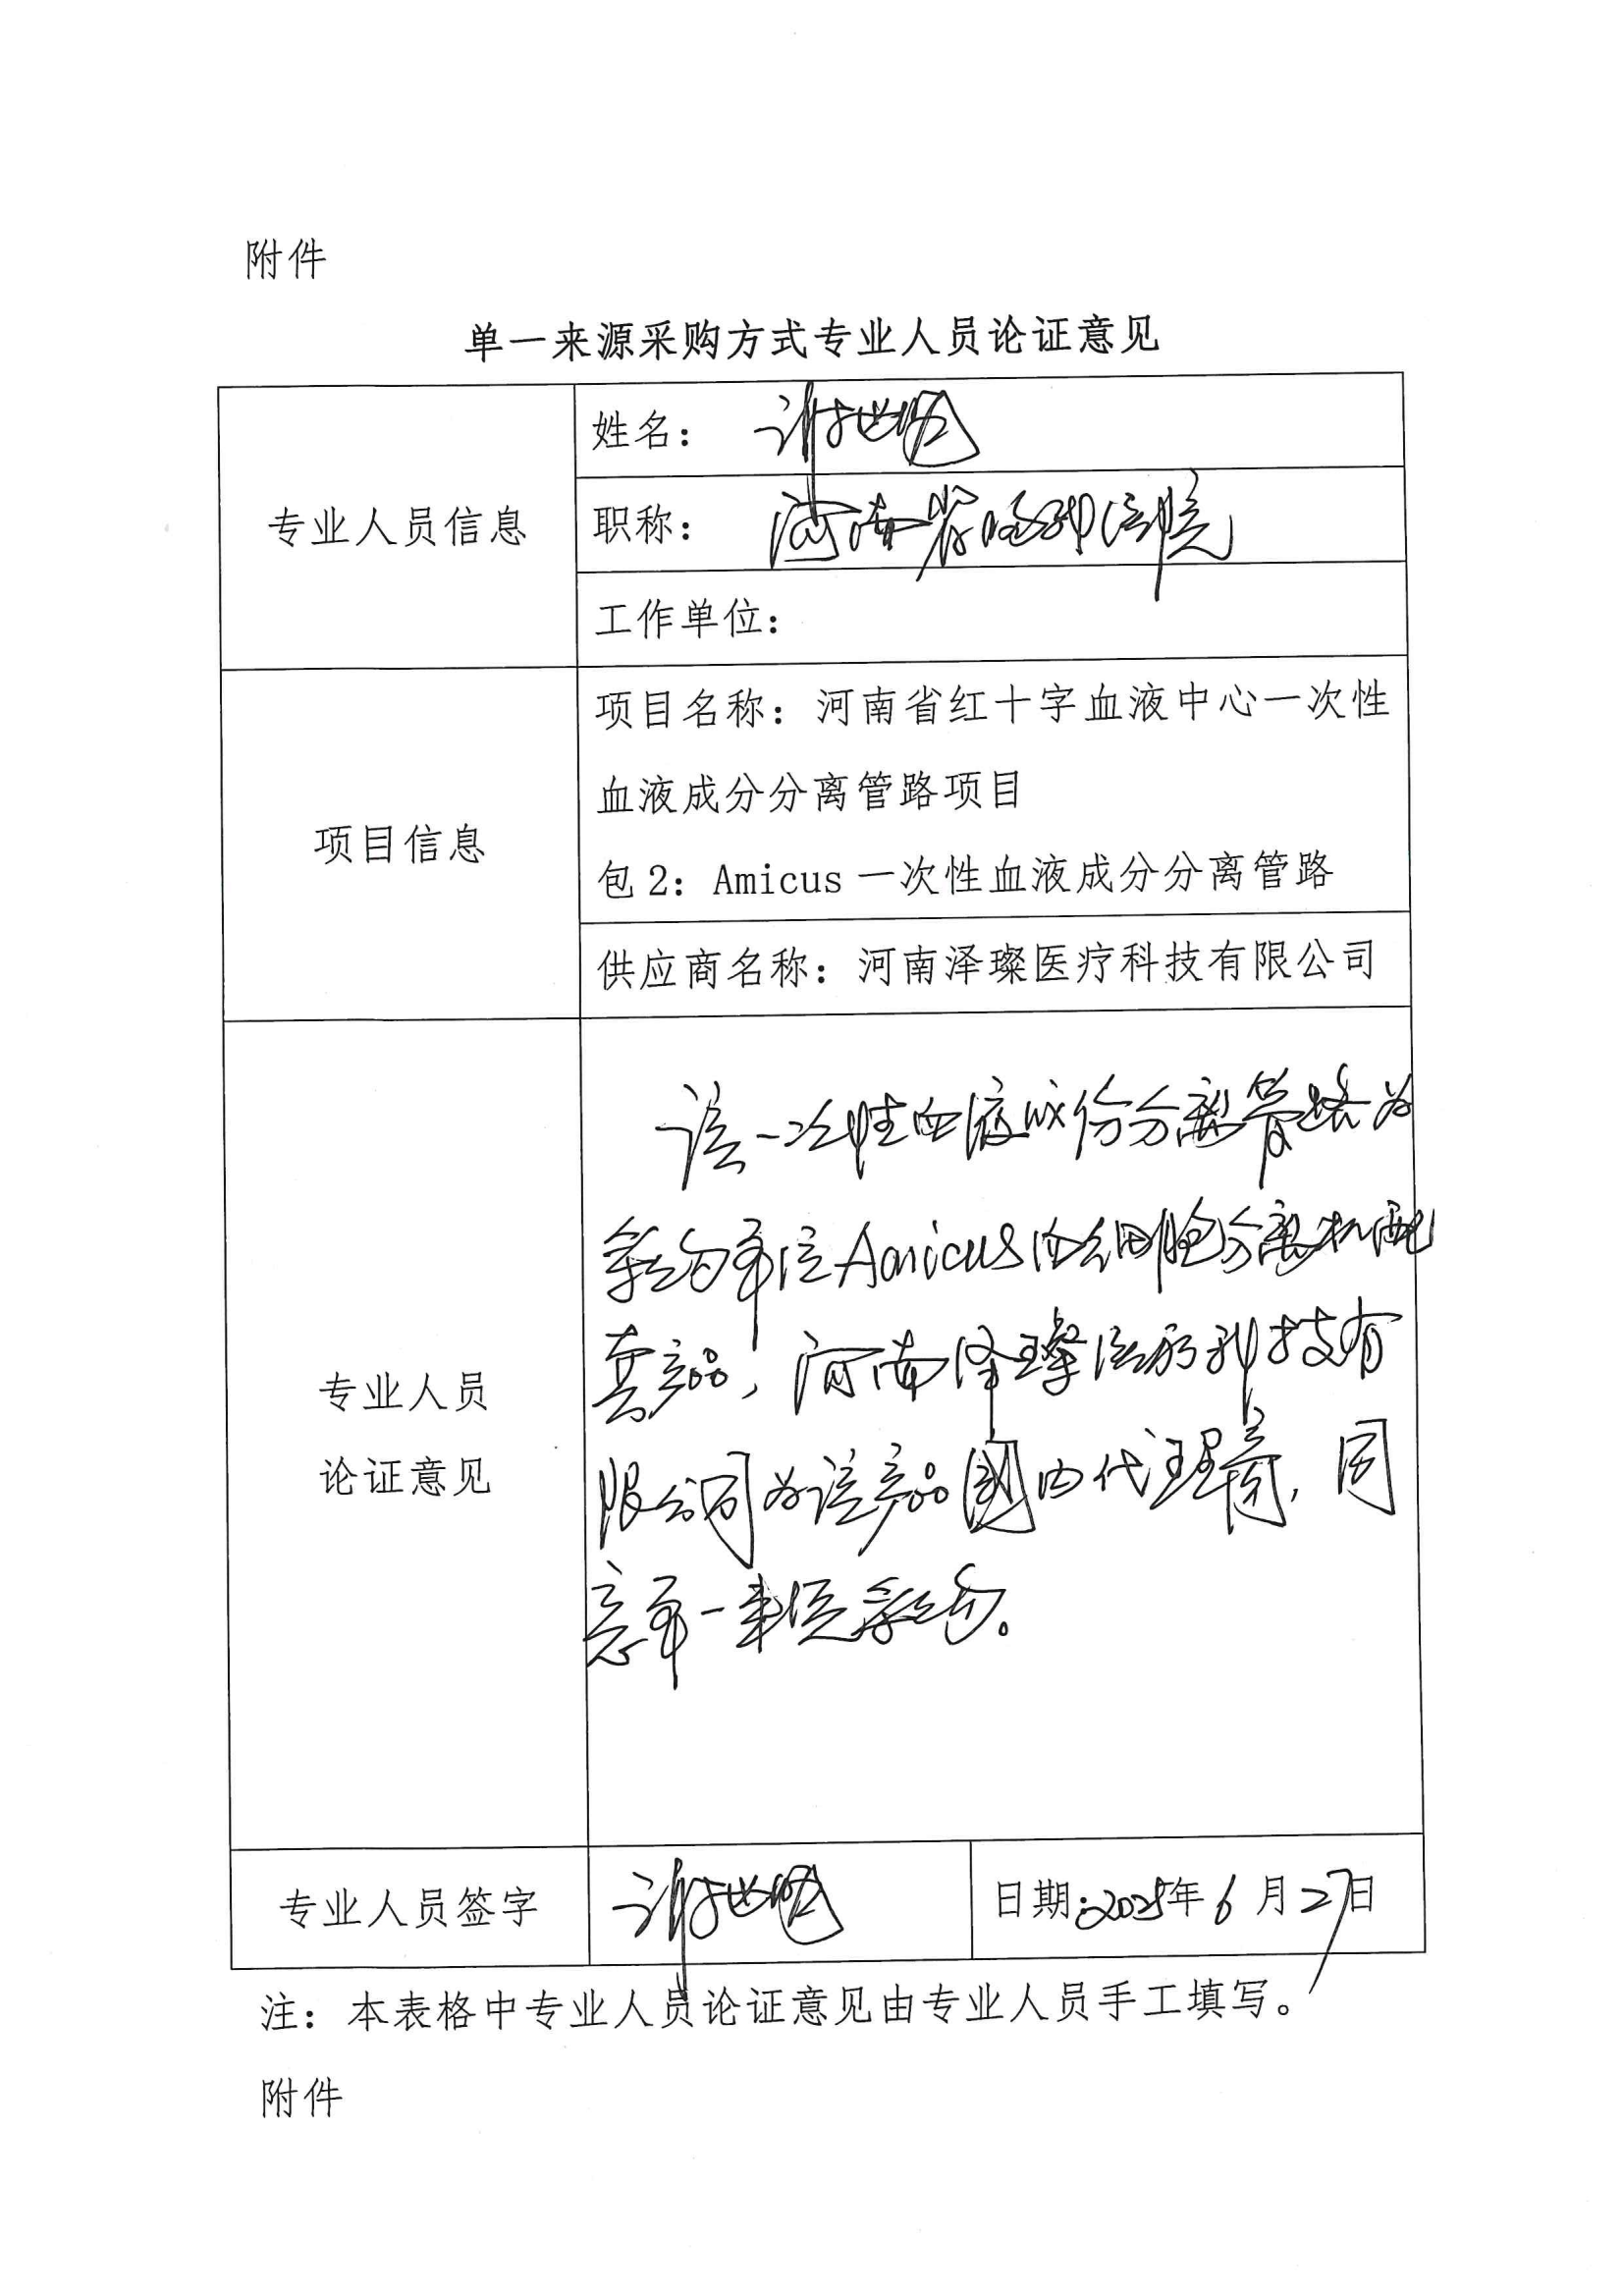 附件
单一来源采购方式专业人员论证意见
专业人员信息
姓名：
职称：河南省胸科医院
工作单位：
项目信息
项目名称：河南省红十字血液中心一次性
血液成分分离管路项目
包2：Amicus一次性血液成分分离管路
供应商名称：河南泽璨医疗科技有限公司
专业人员
论证意见
该一次性血液成份分离管路为
采购单位Amicus血细胞分离机配
套产品，河南泽璨医疗科技有
限公司为该产品国内代理商，同
意单一来源采购。
专业人员签字
日期：2025年6月27日
注：本表格中专业人员论证意见由专业人员手工填写。
附件